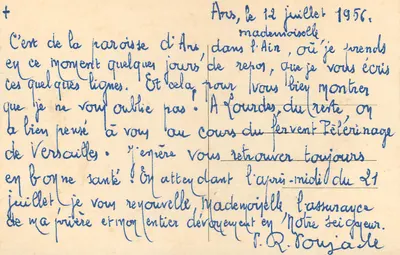 + Ars, le 12 juillet 1956.
mademoiselle
C'est de la paroisse d'Ars, dans l'Ain, où je prends
en ce moment quelques jours de repos, que je vous écris
ces quelques lignes. Et cela pour vous bien montrer
que je ne vous oublie pas. A Lourdes, du reste, on
a bien pensé à vous au cours du fervent Pèlerinage
de Versailles. J'espère vous retrouver toujours
en bonne santé. En attendant l'après-midi du 21
juillet, je vous renouvelle, Mademoiselle, l'assurance
de ma prière et mon entier dévouement en Notre Seigneur.
R.